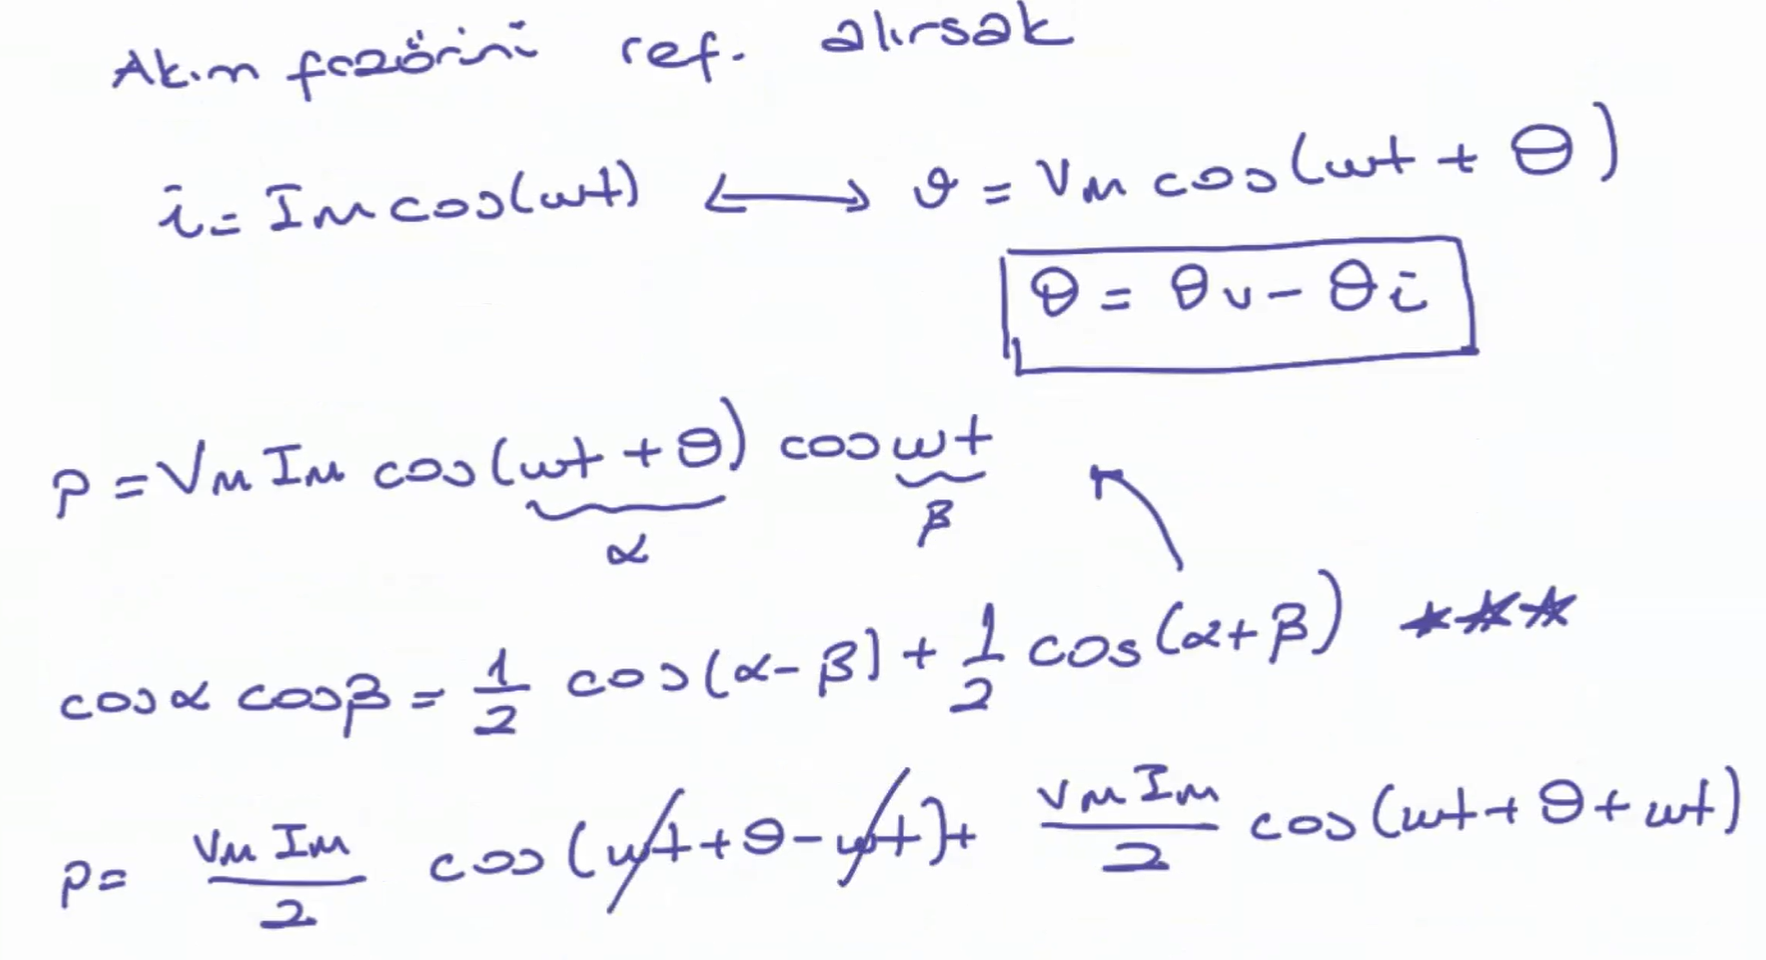 Akım fazörini ref. alırsak
i = Im cos(ωt) ⟷ v = Vm cos(ωt + θ)
θ = θv - θi
p = Vm Im cos(ωt + θ) cos ωt
α β
cosα cosβ = 1/2 cos(α-β) + 1/2 cos(α+β) ***
p = Vm Im / 2 cos(ωt + θ - ωt) + Vm Im / 2 cos(ωt + θ + ωt)